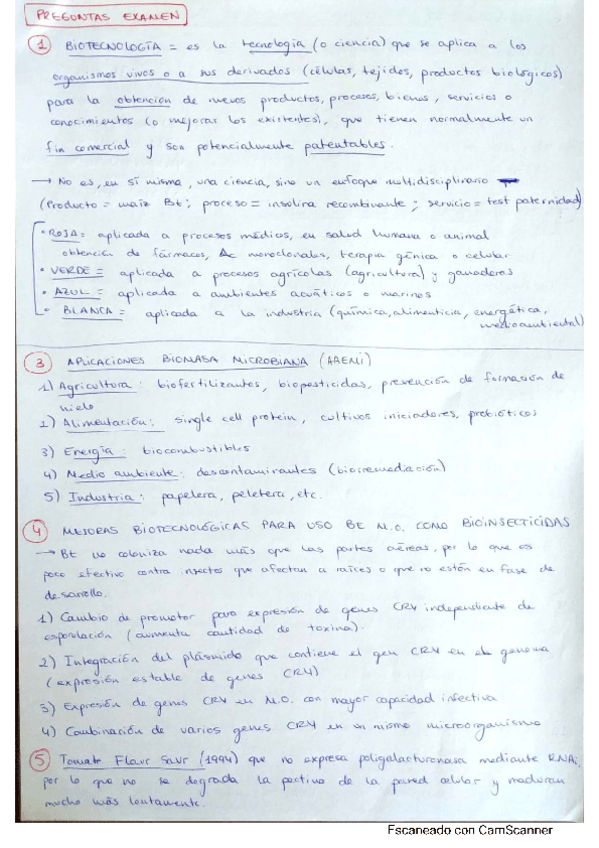 PREGUNTAS EXAMEN
1 BIOTECNOLOGÍA = es la tecnología (o ciencia) que se aplica a los
organismos vivos o a sus derivados (células, tejidos, productos biológicos)
para la obtención de nuevos productos, procesos, bienes, servicios o
conocimientos (o mejorar los existentes), que tienen normalmente un
fin comercial y son potencialmente patentables.
→ No es, en sí misma, una ciencia, sino un enfoque multidisciplinario
(Producto = maíz Bt; proceso = insulina recombinante; servicio = test paternidad)
• ROJA = aplicada a procesos médicos, en salud humana o animal
obtención de fármacos, Ac monoclonales, terapia génica o celular
• VERDE = aplicada a procesos agrícolas (agricultura) y ganaderos
• AZUL = aplicada a ambientes acuáticos o marinos
• BLANCA = aplicada a la industria (química, alimenticia, energética,
medioambiental)
3 APLICACIONES BIOMASA MICROBIANA (AAEMI)
1) Agricultura: biofertilizantes, biopesticidas, prevención de formación de
hielo
2) Alimentación: single cell protein, cultivos iniciadores, probióticos
3) Energía: biocombustibles
4) Medio ambiente: descontaminantes (biorremediación)
5) Industria: papelera, peletera, etc.
4 MEJORAS BIOTECNOLÓGICAS PARA USO BE M.O. COMO BIOINSECTICIDAS
→ BT no coloniza nada más que las partes aéreas, por lo que es
poco efectivo contra insectos que afectan a raíces o que no están en fase de
desarrollo.
1) Cambio de promotor para expresión de genes CRY independiente de
esporulación (aumenta cantidad de toxina).
2) Integración del plásmido que contiene el gen CRY en el genoma
(expresión estable de genes CRY)
3) Expresión de genes CRY en M.O. con mayor capacidad infectiva
4) Combinación de varios genes CRY en un mismo microorganismo
5 Tomate Flavr Savr (1994) que no expresa poligalacturonasa mediante RNAi,
por lo que no se degrada la pectina de la pared celular y maduran
mucho más lentamente.
Escaneado con CamScanner